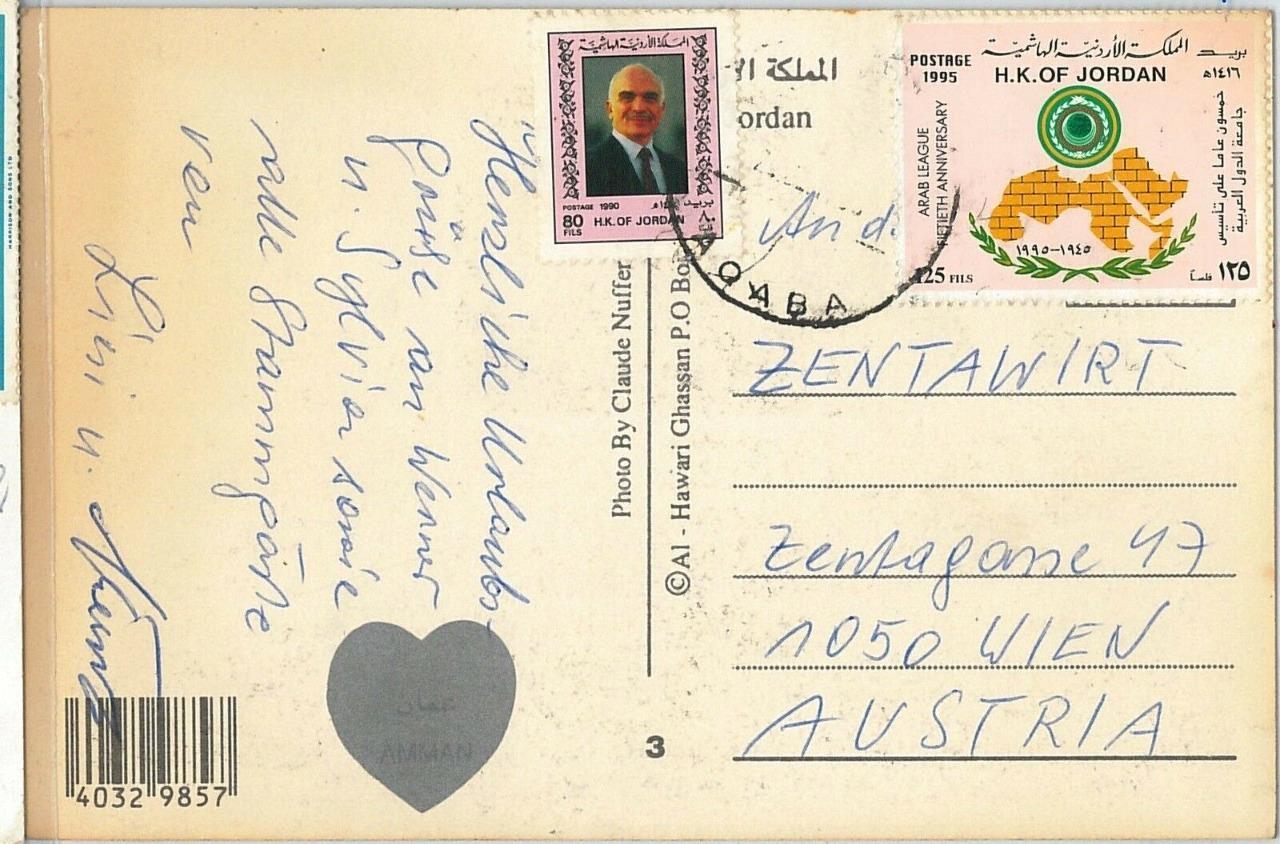 "Herzliche Urlaubs-
Grüße an Werner
u. Sylvia sowie
alle Stammgäste
von
Lisi u. Heinz
المملكة الأردنية الهاشمية
POSTAGE 1990
80
FILS
H.K.OF JORDAN
بريد
٨٠
المملكة
ordan
POSTAGE
1995
المملكة الأردنية الهاشمية
بريد
١٤١٦هـ
H.K.OF JORDAN
ARAB LEAGUE
FIFTIETH ANNIVERSARY
خمسون عاما على تأسيس
جامعة الدول العربية
١٩٩٥-١٩٤٥
125 FILS
١٢٥ فلسا
AQABA
An d.
ZENTAWIRT
Zentagasse 47
1050 WIEN
AUSTRIA
Photo By Claude Nuffer
©Al - Hawari Ghassan P.O Bo
3
عمان
AMMAN
4032 9857
HARRISON AND SONS LTD